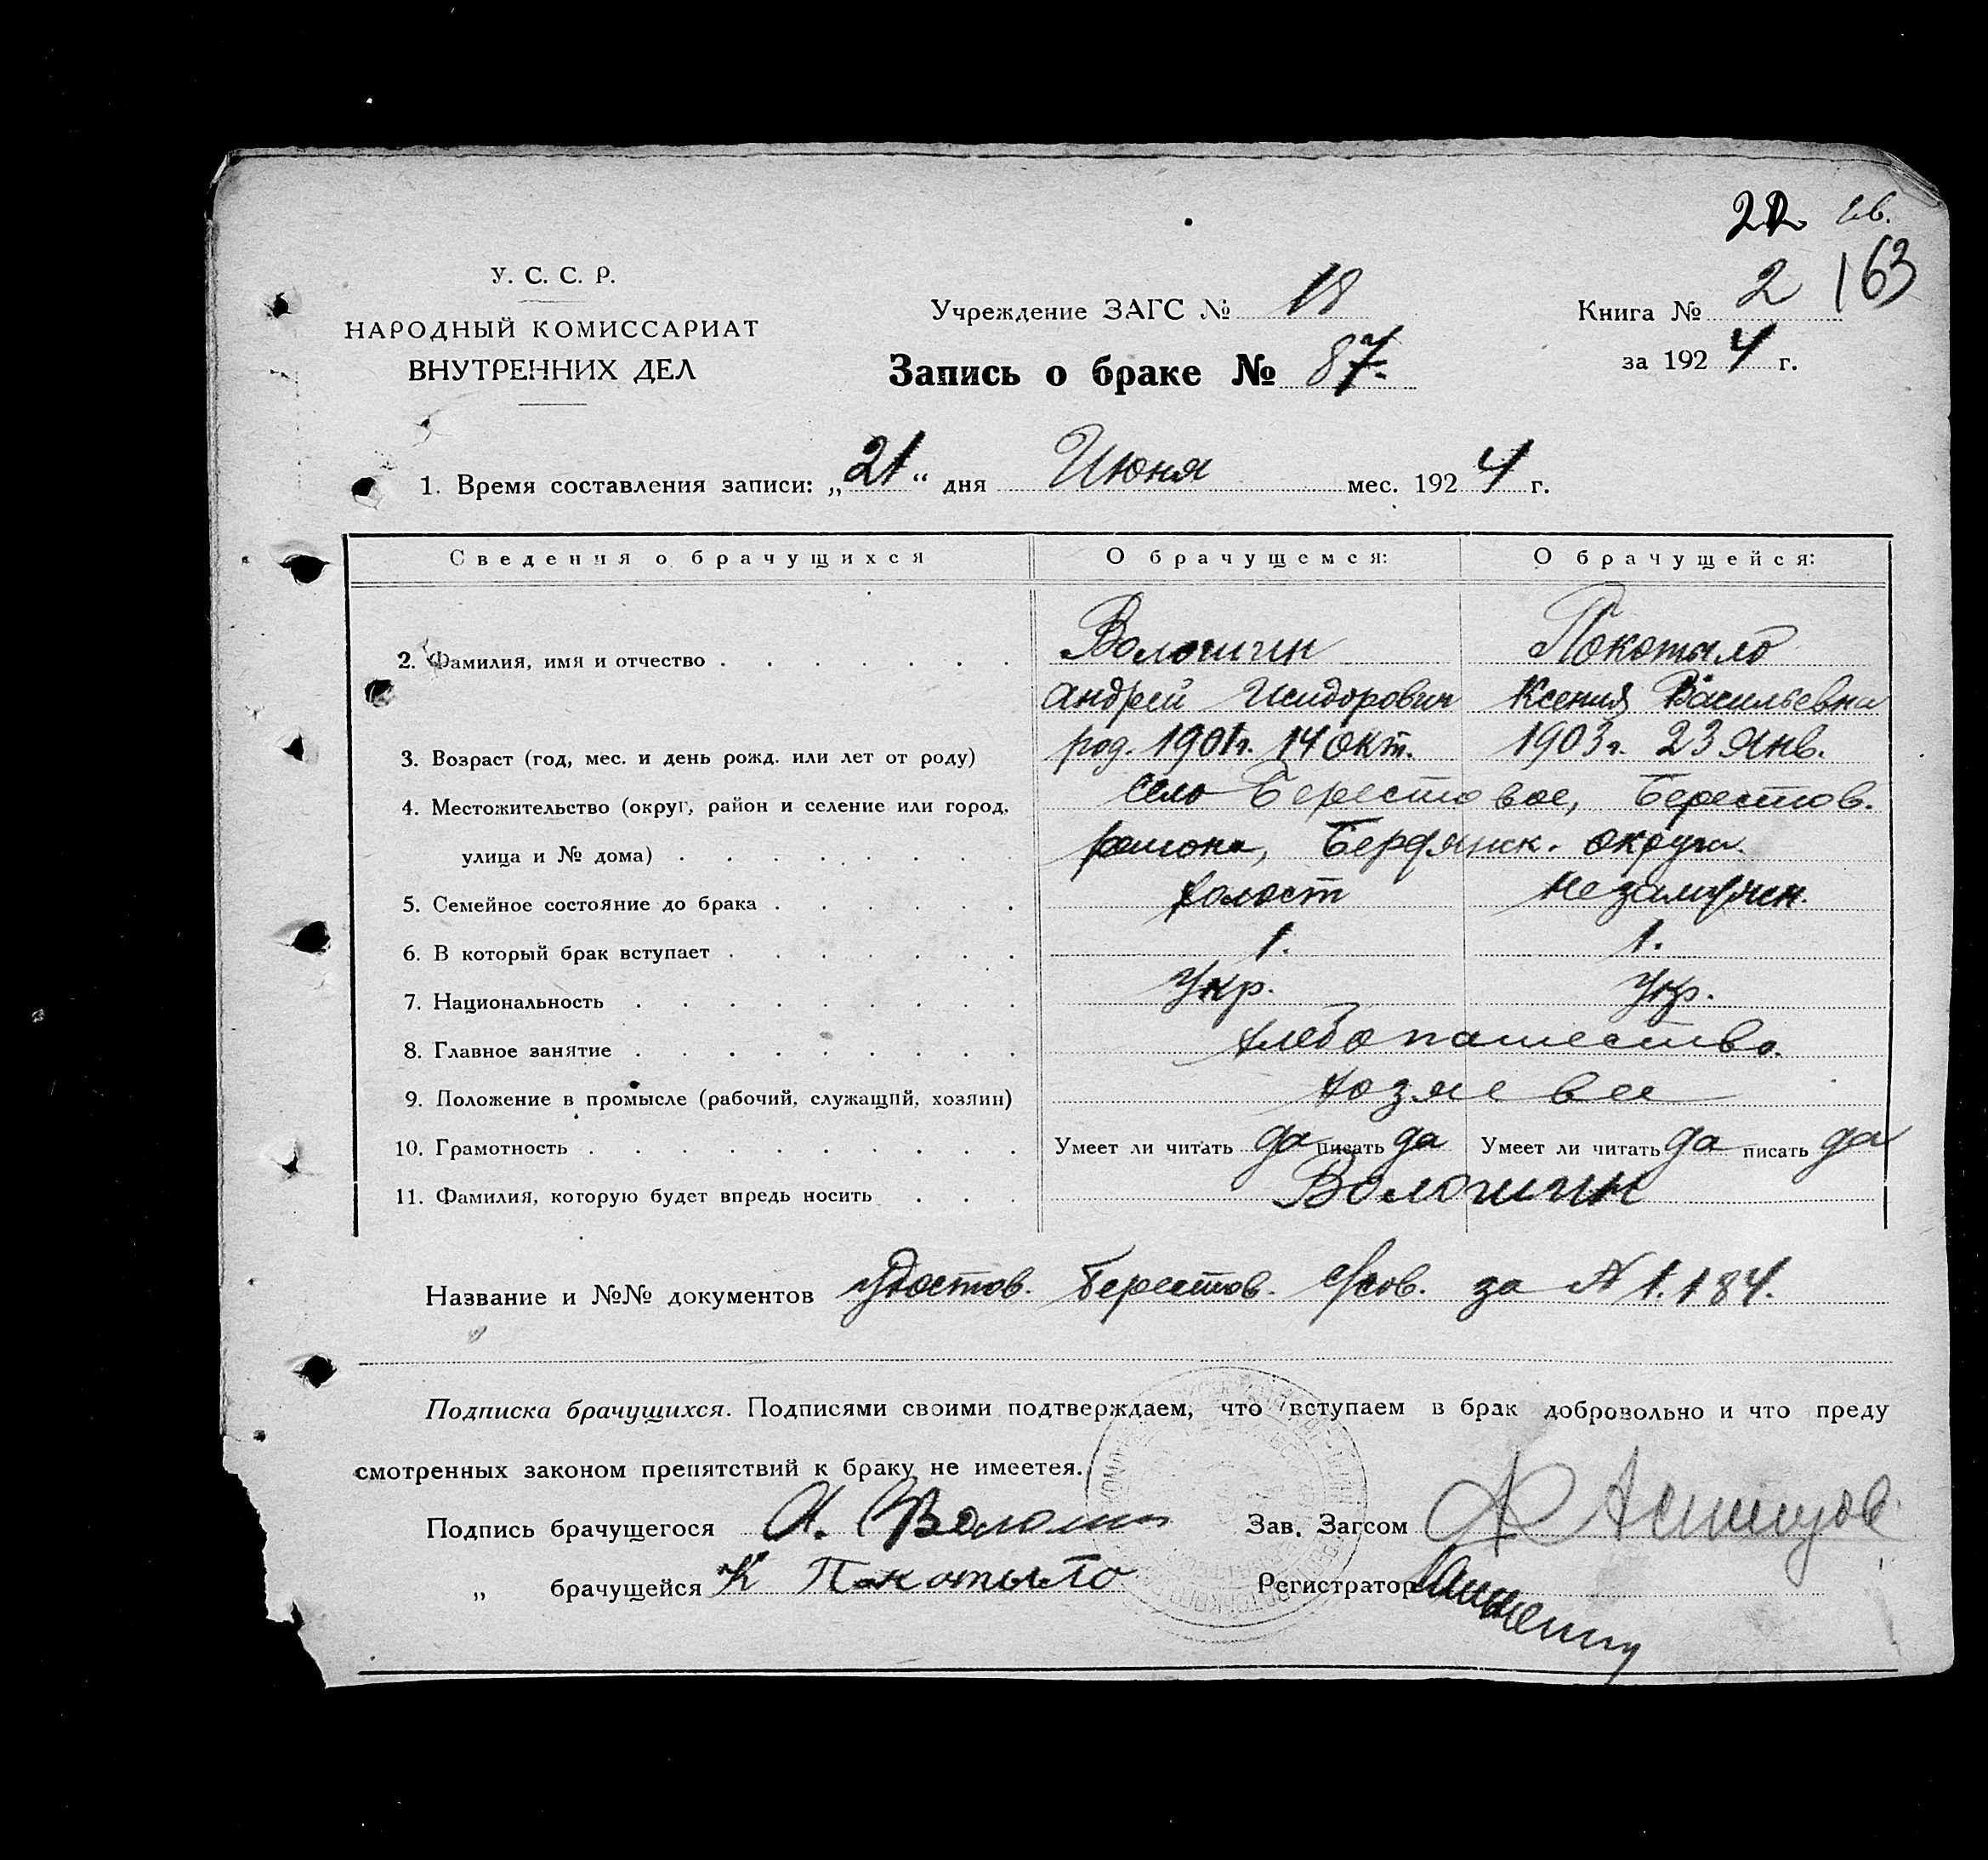 22 св.
У. С. С. Р.
НАРОДНЫЙ КОМИССАРИАТ
ВНУТРЕННИХ ДЕЛ
Учреждение ЗАГС № 18
Книга № 2 163
Запись о браке № 87.
за 1924 г.
1. Время составления записи: „21“ дня Июня мес. 1924 г.
Сведения о брачущихся О брачущемся: О брачущейся:
2. Фамилия, имя и отчество Волошин Покотыло
Андрей Исидорович Ксения Васильевна
3. Возраст (год, мес. и день рожд. или лет от роду) род. 1901г. 14 окт. 1903г. 23 Янв.
4. Местожительство (округ, район и селение или город, село Берестовое, Берестов.
улица и № дома) района, Бердянск. округа.
5. Семейное состояние до брака холост незамужн.
6. В который брак вступает 1. 1.
7. Национальность Укр. Укр.
8. Главное занятие хлебопашество.
9. Положение в промысле (рабочий, служащий, хозяин) хозяева
10. Грамотность Умеет ли читать да писать да Умеет ли читать да писать да
11. Фамилия, которую будет впредь носить Волошин
Название и №№ документов Удостов. Берестов. с/сов. за № 1.184.
Подписка брачущихся. Подписями своими подтверждаем, что вступаем в брак добровольно и что преду
смотренных законом препятствий к браку не имеетея.
Подпись брачущегося А. Волошин Зав. Загсом
„ брачущейся К Покотыло Регистратор